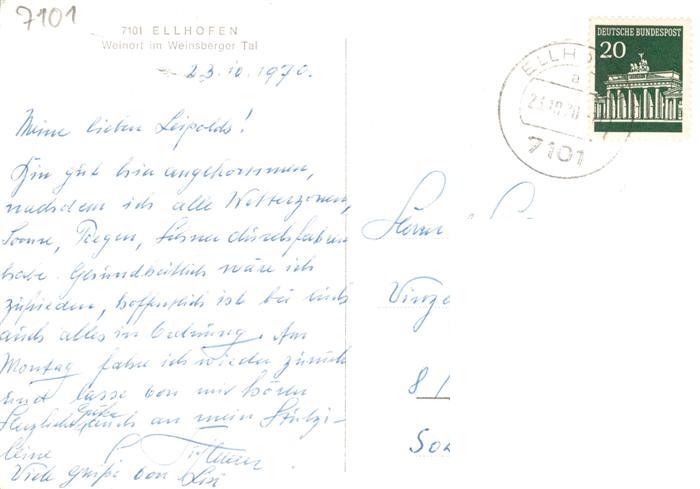 7101
7101 ELLHOFEN
Weinort im Weinsberger Tal
23.10.1970.
Meine lieben Leipolds!
Bin gut hier angekommen,
nachdem ich alle Wetterzonen,
Sonne, Regen, Schnee durchfahren
habe. Gesundheitlich wäre ich
zufrieden, hoffentlich ist bei Euch
auch alles in Ordnung. Am
Montag fahre ich wieder zurück
und lasse von mir hören
Herzliche Grüße Euch an mein
Viele Grüße von
DEUTSCHE BUNDESPOST
20
ELLHO
a
23.10.70
7101
Herrn
Vinze
8